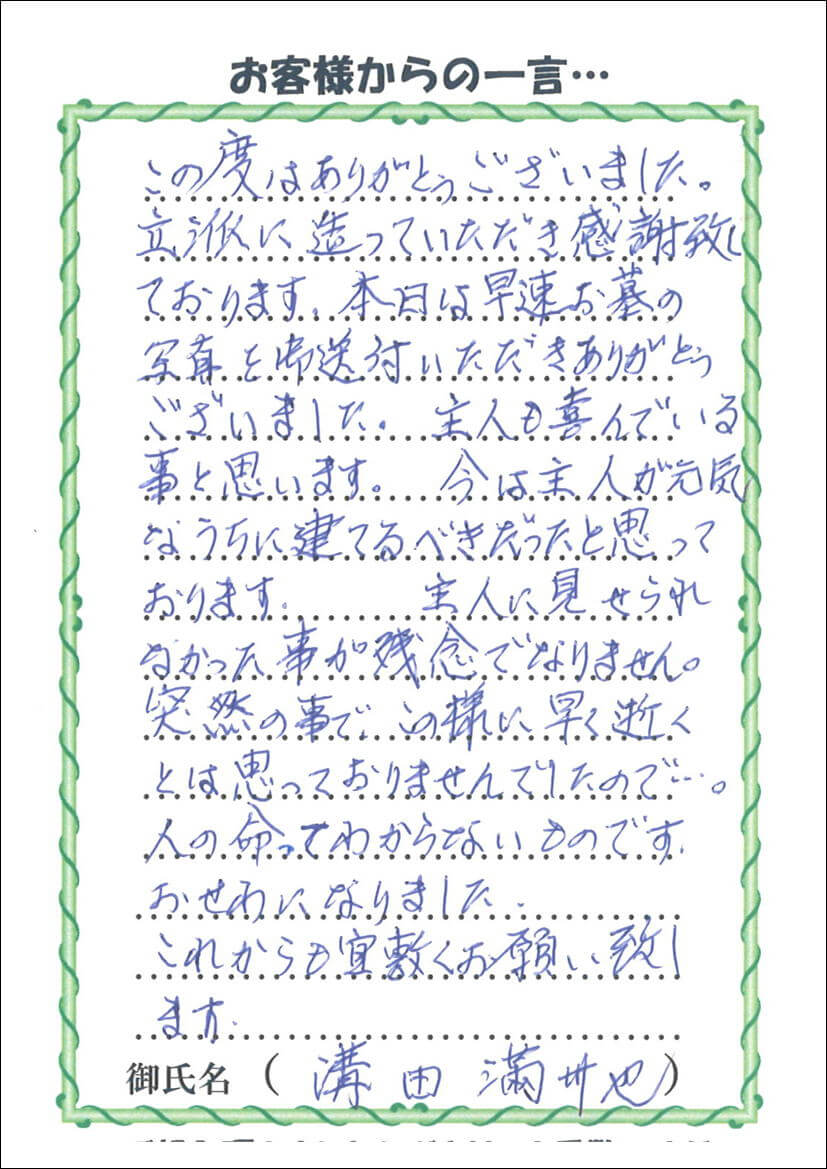 お客様からの一言…
この度はありがとうございました。
立派に造っていただき感謝致し
ております。本日は早速お墓の
写真を御送付いただきありがとう
ございました。主人も喜んでいる
事と思います。今は主人が元気
なうちに建てるべきだったと思って
おります。主人に見せられ
なかった事が残念でなりません。
突然の事で、この様に早く逝く
とは思っておりませんでしたので…。
人の命ってわからないものです。
おせわになりました。
これからも宜敷くお願い致し
ます。
御氏名（溝田 満 也）